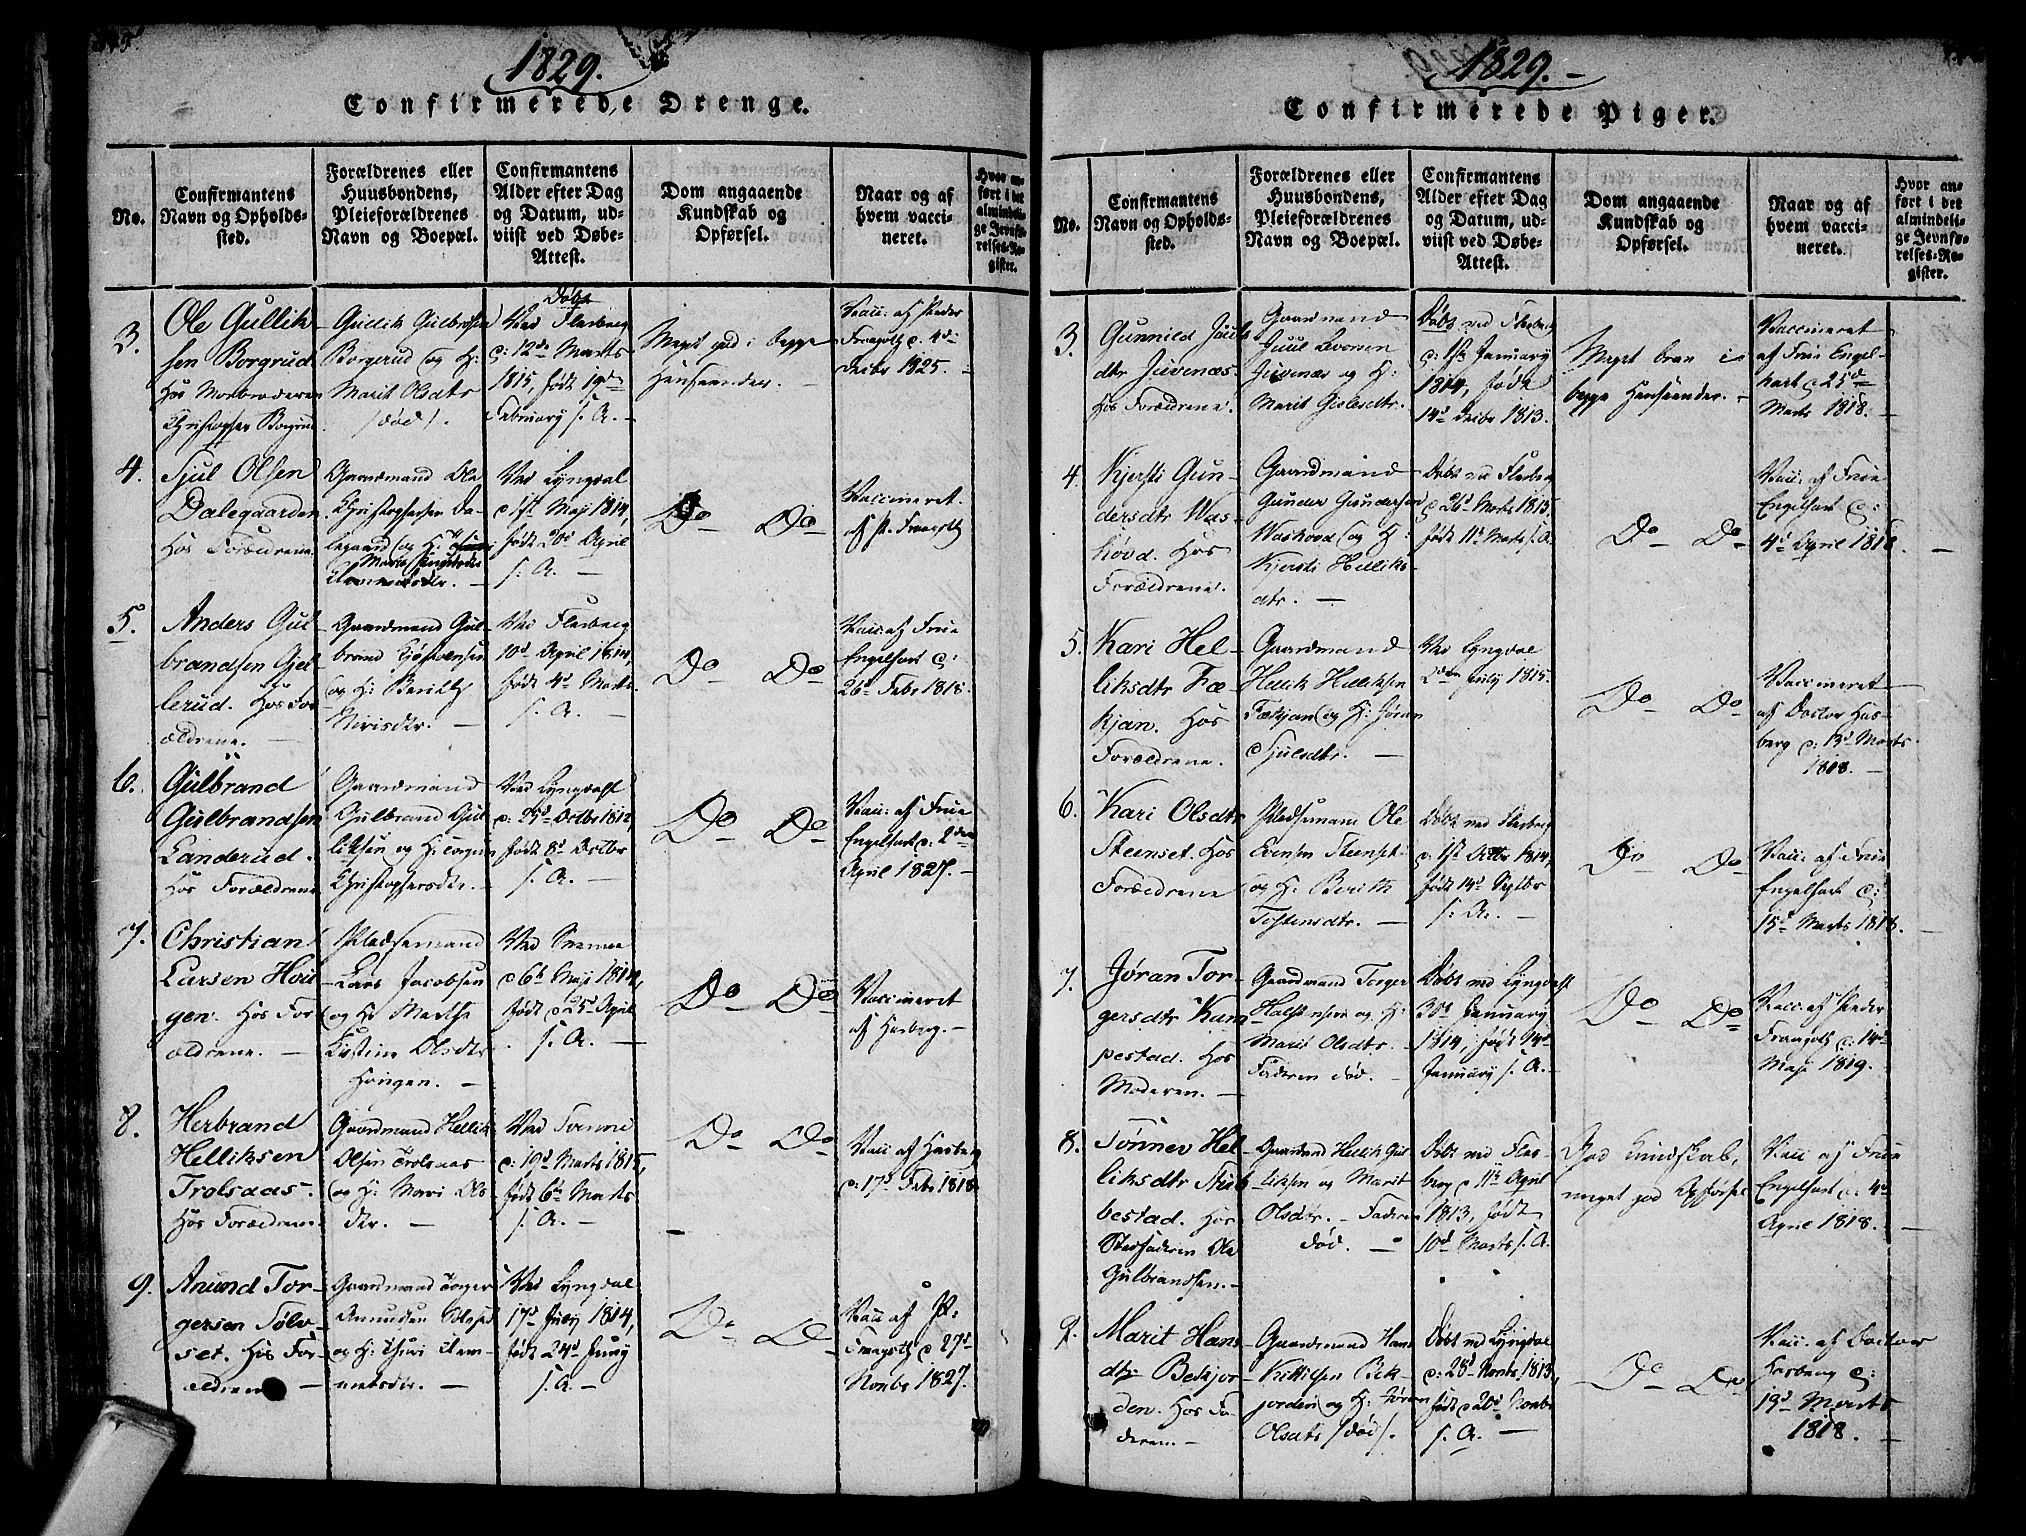 1829.
Confirmerede Drenge.
No.
Confirmantens
Navn og Opholds-
sted.
Forældrenes eller
Huusbondens,
Pleieforældrenes
Navn og Boepæl.
Confirmantens
Alder efter Dag
og Datum, ud-
viist ved Døbe-
Attest.
Dom angaaende
Kundskab og
Opførsel.
Naar og af
hvem vacci-
neret.
Hvor an-
ført i det
almindeli-
ge Jevnfø-
relses-Re-
gister.
3.
Ole Gullik-
sen Borgrud
Hos Morbroderen
Christopher Borgrud
Gullik Gulbrandsen
Borgerud og H:
Marit Olsdtr
/død/.
Døbt
Ved Flesberg
d: 12te Marts
1815, født 19de
February s. A. -
Meget god i begge
Henseender. -
Vacc: af Peder
Fragolt d: 4de
Decbr 1825. -
4.
Sjul Olsen
Dalegaarden
Hos Forældrene
Gaardmand Ole
Christophersen Da-
legaard og H:
Ved Lyngdal
d 1ste Maj 1814,
født 20d April
s. A. -
Do Do
Vaccineret
af P. Fragolt
5.
Anders Gul-
brandsen Gjel-
lerud. Hos For-
ældrene. -
Gaardmand Gul-
brand
og H: Berith
Nirisdtr. -
Ved Flesberg
10d April 1814,
født 4d Marts
s. A. -
Do Do
Vacc: af Frue
Engelhart d:
26d Febr 1818.
6.
Gulbrand
Gulbrandsen
Landerud.
Hos Forældrene
Gaardmand
Gulbrand Gul-
liksen og H: Torgun
Christophersdtr. -
Ved Lyngdahl
født 8d Octbr
s. A. -
Do Do
Vacc: af Frue
Engelhart d: 2den
April 1827. -
7.
Christian
Larsen Hou-
gen. Hos For-
ældrene. -
Pladsemand
Lars Jacobsen
og H: Marthe
Kistine Olsdtr
Hougen. -
Ved Svenne
d 6te Maj 1814,
født d 25d April
s. A. -
Do Do
Vaccineret
af Hasberg. -
8.
Herbrand
Helliksen
Trolsaas.
Hos Forældrene
Gaardmand Hellik
Olsen Trolsaas
og H: Mari Ols-
dtr. -
Ved Svenne
d: 19d Marts 1815,
født 6te Marts
s. A. -
Do Do
Vacc af Hasberg
d: 17d Febr 1818
9.
Anund Tor-
gersen Tølv-
set. Hos For-
ældrene -
Gaardmand Torger
Anundsen Tølvset
og H: Thuri Clem-
metsdtr. -
Ved Lyngdal
17d July 1814,
født 24d Juny
s. A. -
Do Do
Vacc af P:
Fragolt d 27d
Novbr 1827.
1829. -
Confirmerede Piger.
No.
Confirmantens
Navn og Opholds-
sted.
Forældrenes eller
Huusbondens,
Pleieforældrenes
Navn og Boepæl.
Confirmantens
Alder efter Dag
og Datum, ud-
viist ved Døbe-
Attest.
Dom angaaende
Kundskab og
Opførsel.
Naar og af
hvem vacci-
neret.
Hvor an-
ført i det
almindeli-
ge Jevnfø-
relses-Re-
gister.
3.
Gunnild Juuls
dtr Juvenæs.
Hos Forældrene.
Gaardmand
Juul Evensen
Juvenæs og H:
Marit Gislesdtr.
Døbt ved Flesberg
d: 1ste January
1814, født
14d Decbr 1813.
Meget brav i
begge Henseender. -
Vaccineret
af Frue Engel-
hart d 25d
Marts 1818. -
4.
Kjersti Gun-
dersdtr Was-
hovd. Hos
Forældrene.
Gaardmand
Gunder Gundersen
Washovd og H:
Kjersti Helliks-
dtr. -
Døbt ved Flesberg
d 26d Marts 1815
født 11te Marts s. A
Do Do
Vacc: af Frue
Engelhart d:
4d April 1818. -
5.
Kari Hel-
liksdtr Fæ-
kjan. Hos
Forældrene.
Gaardmand
Hellik Helliksen
Fækjan og H: Jøran
Sjulsdtr. -
Ved Lyngdal
2den July 1815.
Do Do
Vaccineret
af Doctor Has-
berg d: 13d Marts
1818. -
6.
Kari Olsdtr
Steenset. Hos
Forældrene
Pladsemand Ole
Evensen Steenset
og H: Berith
Tostensdtr. -
Døbt ved Flesberg
d: 1ste Octbr 1814,
født 14d Septbr
s. A. -
Do Do
Vacc: af Frue
Engelhart d:
15d Marts 1818. -
7.
Jøran Tor-
gersdtr Kum-
pestad. Hos
Moderen. -
Gaardmand Torger
Halstensen og H:
Marit Olsdtr. -
Faderen død. -
Døbt ved Lyngdahl
30d January
1814, født 14d
January s. A. -
Do Do
Vacc. af Peder
Fragolt d: 14d
Maji 1819. -
8.
Tønnev Hel-
liksdtr Stub-
bestad. Hos
Stedfaderen Ole
Gulbrandsen. -
Gaardmand Hellik Gul-
liksen og Marit
Olsdtr. - Faderen
død. -
Døbt ved Fles-
berg d 11te April
1813, født
10d Marts s. A.
God Kundskab,
meget god Opførsel
Vacc af Frue
Engelhart d: 4d
April 1818. -
9.
Marit Hans
dtr Bekjor-
den. Hos Fa-
deren. -
Gaardmand Hans
Kittilsen Bek-
jorden og H: Jøran
Olsdtr /død/.
Døbt ved Lyngdal
d: 28d Novbr 1813,
født d 20d Novbr
s. A. -
Do Do
Vacc. af Doctor
Hasberg d:
19d Marts
1818. -